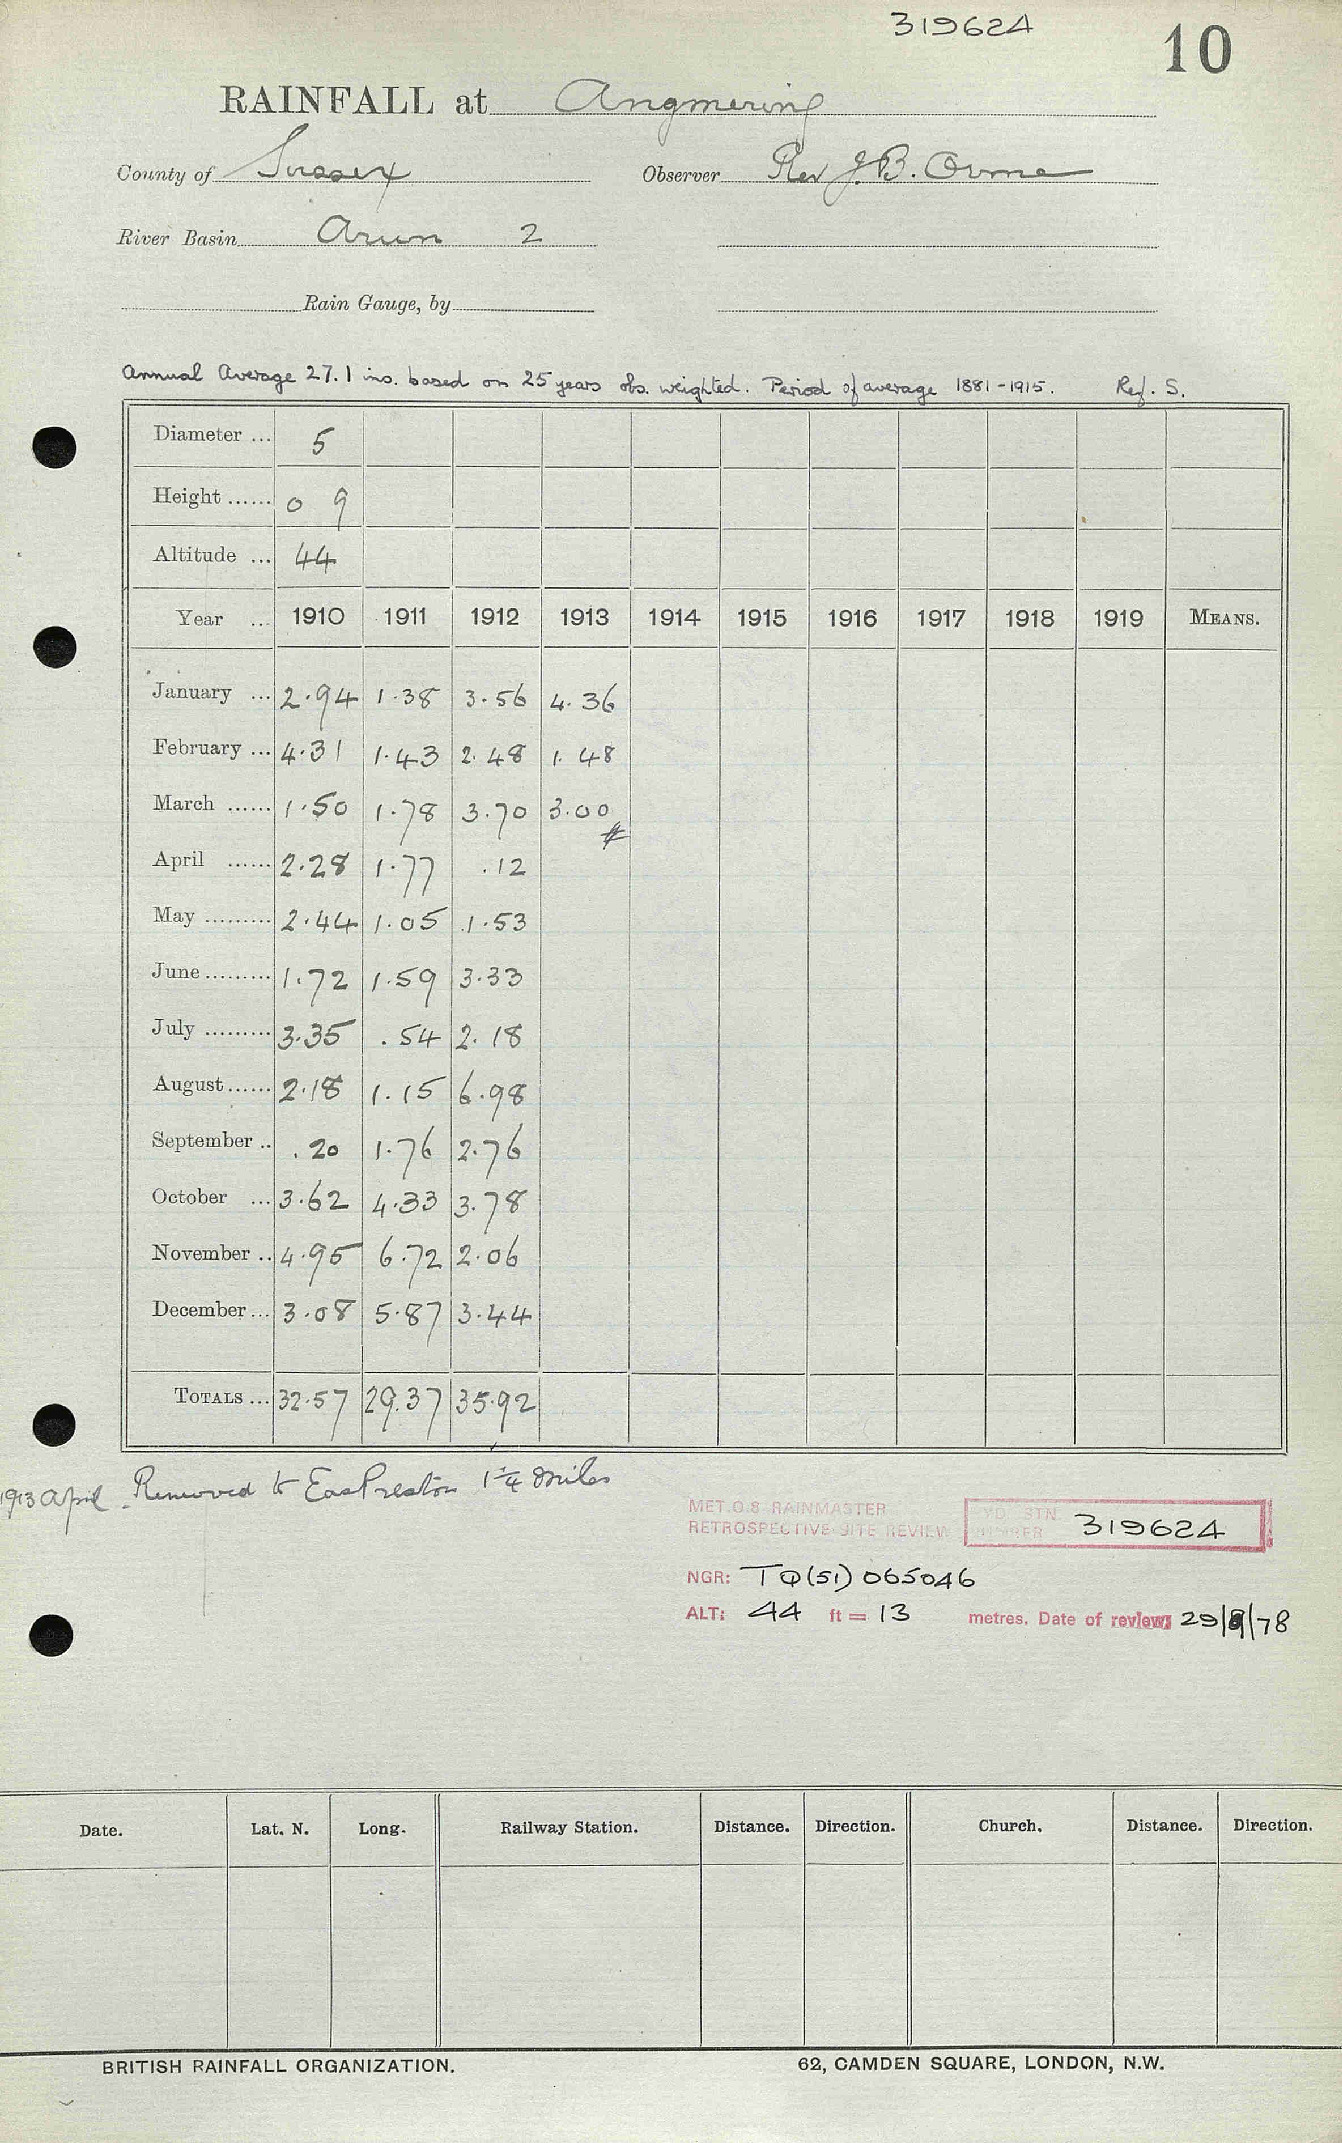 319624
10
RAINFALL at Angmering
County of Sussex Observer Rev J.B. Orme
River Basin Arun 2
Rain Gauge, by
Annual Average 27.1 ins. based on 25 years obs. weighted. Period of average 1881-1915. Ref. S.
Diameter ... 5
Height ...... 0 9
Altitude ... 44
Year ... 1910 1911 1912 1913 1914 1915 1916 1917 1918 1919 MEANS.
January ... 2.94 1.38 3.56 4.36
February ... 4.31 1.43 2.48 1.48
March ...... 1.50 1.78 3.70 3.00
April ...... 2.28 1.77 .12
May ......... 2.44 1.05 1.53
June ......... 1.72 1.59 3.33
July ......... 3.35 .54 2.18
August ...... 2.18 1.15 6.98
September .. .20 1.76 2.76
October ... 3.62 4.33 3.78
November .. 4.95 6.72 2.06
December ... 3.08 5.87 3.44
TOTALS ... 32.57 29.37 35.92
1913 April. Removed to East Preston 1 1/4 miles
MET.O.8 RAINMASTER
RETROSPECTIVE SITE REVIEW
STN. 319624
NGR: TQ(51) 065046
ALT: 44 ft = 13 metres. Date of review: 29/8/78
Date. Lat. N. Long. Railway Station. Distance. Direction. Church. Distance. Direction.
BRITISH RAINFALL ORGANIZATION. 62, CAMDEN SQUARE, LONDON, N.W.